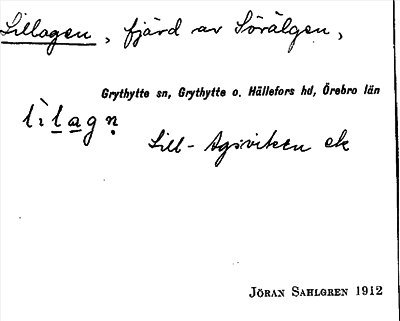 Lillagen, fjärd av Sörälgen,
Grythytte sn, Grythytte o. Hällefors hd, Örebro län
lìlagn̥
Lill-Agsviken ek
JÖRAN SAHLGREN 1912